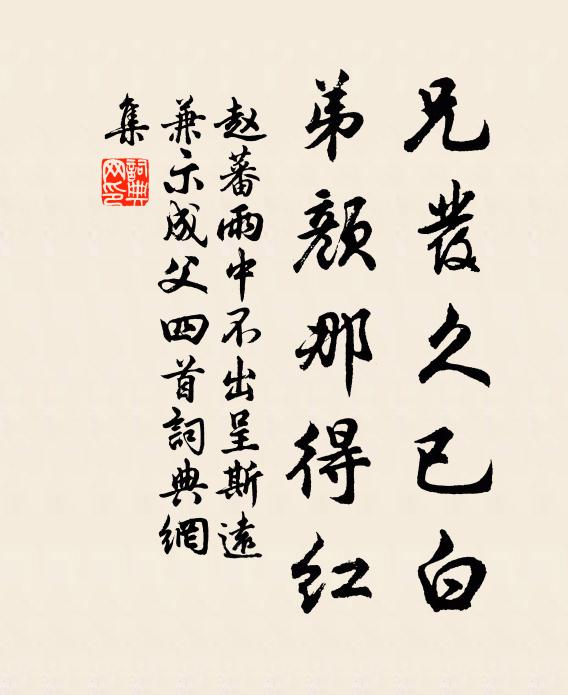 兄發久已白
弟顏那得紅
赵蕃雨中不出呈斯遠
兼示成父四首詞典網
集
詞典網印